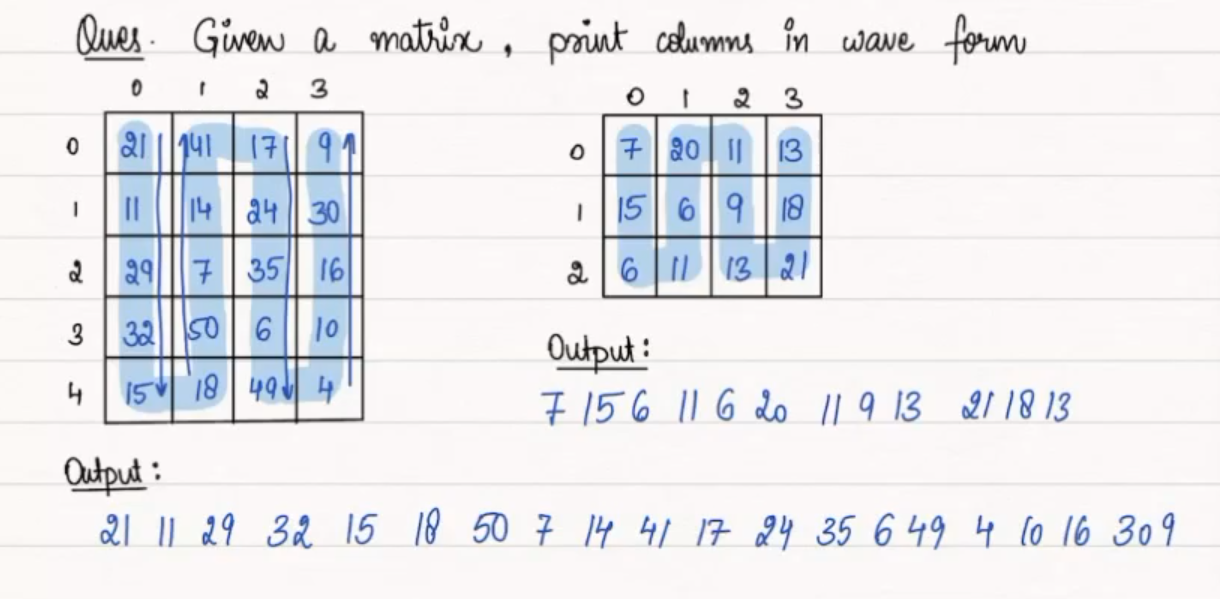 Ques. Given a matrix, print columns in wave form
0 1 2 3
0 21 41 17 9
1 11 14 24 30
2 29 7 35 16
3 32 50 6 10
4 15 18 49 4
Output:
21 11 29 32 15 18 50 7 14 41 17 24 35 6 49 4 10 16 30 9
0 1 2 3
0 7 20 11 13
1 15 6 9 18
2 6 11 13 21
Output:
7 15 6 11 6 20 11 9 13 21 18 13